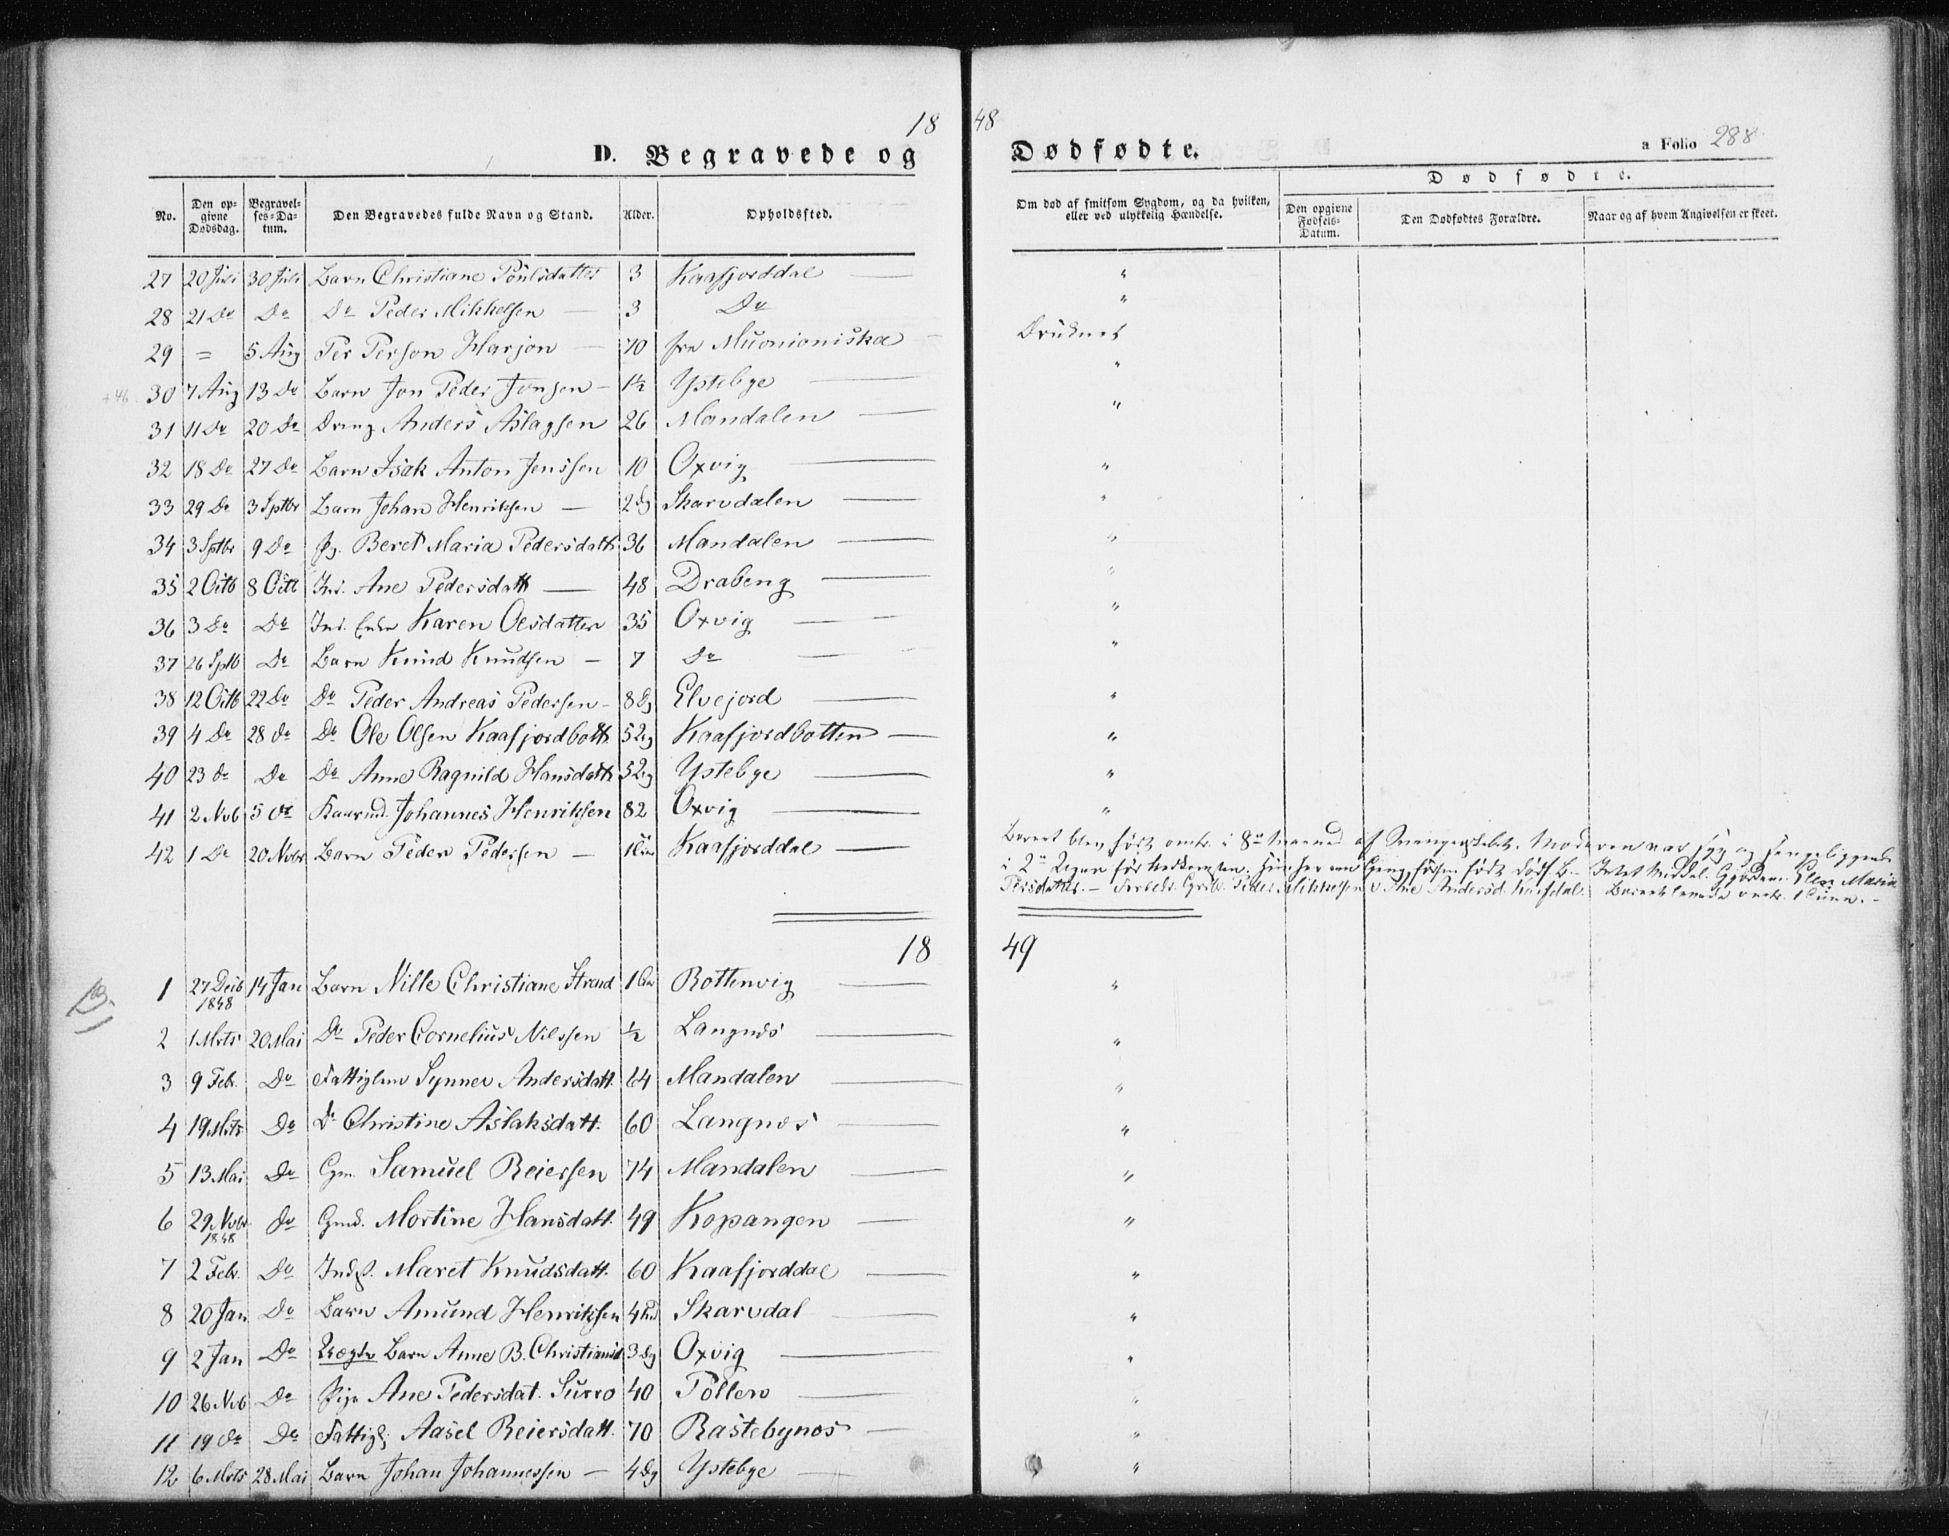 18 48
D. Begravede og Dødfødte. a Folio 288
No. Den opgivne Dødsdag. Begravelses-Datum. Den Begravedes fulde Navn og Stand. Alder. Opholdssted. Om død af smitsom Sygdom, og da hvilken, eller ved ulykkelig Hændelse. Dødfødte. Den opgivne Fødsels-Datum. Den Dødfødtes Forældre. Naar og af hvem Angivelsen er skeet.
27 20 Juli 30 Juli Barn Christiane Poulsdatter 3 Kaafjorddal "
28 21 Do Do Do Peder Mikkelsen 3 Do "
29 = 5 Aug Per Person Harjon 70 fra Muonioniska Druknet
30 7 Aug 13 Do Barn Jon Peder Jonsen 1½ Ystebye "
31 11 Do 20 Do Dreng Anders Aslagsen 26 Mandalen "
32 18 Do 27 Do Barn Isak Anton Jenssen 10 Oxvig "
33 29 Do 3 Sptbr Barn Johan Henriksen 2 Dg Skarvdalen "
34 3 Sptbr 9 Do Pg. Beret Maria Pedersdatt 36 Mandalen "
35 2 Octb 8 Octb Ind. Ane Pedersdatt 48 Drabeng "
36 3 Do Do Ind. Enke Karen Olsdatter 35 Oxvig "
37 26 Sptb Do Barn Knud Knudsen 7 Do "
38 12 Octb 22 Do Do Peder Andreas Pedersen 8 Dg Elvejord "
39 4 Do 28 do Do Ole Olsen Kaafjordbott. Kaafjordbotten "
40 23 do Do Do Anne Ragnild Hansdatt Ystebye "
41 2 Nvb 5 do Johannes Henriksen 82 Oxvig "
42 1 Do 20 Nvbr Barn Peder Pedersen Kaafjorddal
Barnet blev født omtr. i 8de Maaned af Svangerskabet. Moderen var syg og sengeliggende
i 2
Persdatter. Peder Mikkelsen & Ane Andersd. Kaafdal. Barnet levede omtr. 1 Time.
18 49
1 27 Decb 1848 14 Jan Barn Nille Christiane Strand Rottenvig "
2 1 Mrts 20 Mai Do Peder Cornelius Nilssen ½ Langnes "
3 9 Feb. Do Fattiglem Synnev Andersdatt. 64 Mandalen "
4 19 Mrts Do Do Christine Aslaksdatt. 60 Langnes "
5 13 Mai Do Gm. Samuel Reiersen 74 Mandalen "
6 29 Nvbr 1848 do Gmd. Mortine Hansdatt. 49 Kopangen "
7 2 Febr. Do Indst. Maret Knudsdatt. 60 Kaafjorddal "
8 20 Jan Do Barn Amund Henriksen Skarvdal "
9 2 Jan Do Uægte Barn Anne B. Christiansd 3 Dg Oxvig "
10 26 Nvb Do Pige Ane Pedersdat. Surro 40 Pollen "
11 19 do Do Fattigl. Aasel Reiersdatt. 70 Rastebynes "
12 6 Mrts 28 Mai Barn Johan Johannessen 4 Dg Ystebye "